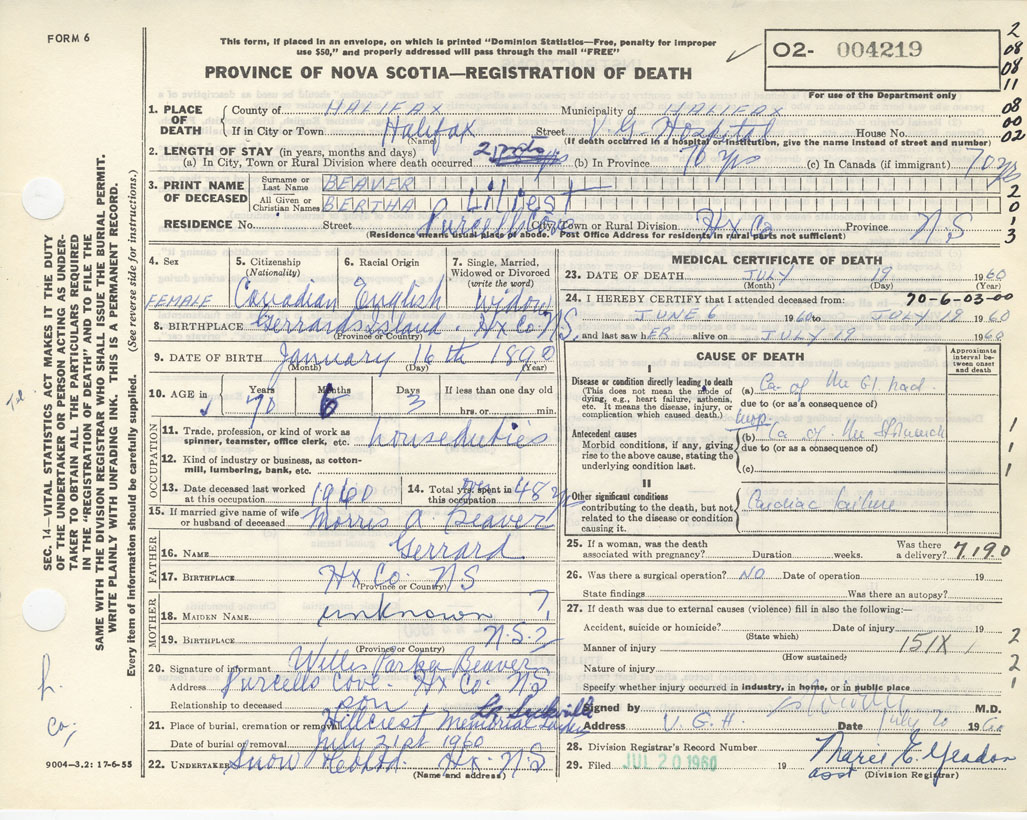 FORM 6
This form, if placed in an envelope, on which is printed "Dominion Statistics—Free, penalty for improper
use $50," and properly addressed will pass through the mail "FREE"
PROVINCE OF NOVA SCOTIA—REGISTRATION OF DEATH
02- 004219
For use of the Department only
2
08
08
11
08
00
02
1. PLACE OF DEATH { County of HALIFAX Municipality of HALIFAX
If in City or Town Halifax Street V.G. Hospital House No.
(Name) (If death occurred in a hospital or institution, give the name instead of street and number)
2. LENGTH OF STAY (in years, months and days)
(a) In City, Town or Rural Division where death occurred 2 (b) In Province 70 yrs (c) In Canada (if immigrant) 70 yrs
3. PRINT NAME OF DECEASED
Surname or Last Name BEAVER
All Given or Christian Names BERTHA
2
0
1
3
RESIDENCE No. Street Purcells Cove City, Town or Rural Division Hx Co Province N.S
(Residence means usual place of abode. Post Office Address for residents in rural parts not sufficient)
4. Sex
FEMALE
5. Citizenship
(Nationality)
Canadian
6. Racial Origin
English
7. Single, Married,
Widowed or Divorced
(write the word)
Widow
8. BIRTHPLACE Gerrards Island. Hx Co N.S.
(Province or Country)
9. DATE OF BIRTH January 16th 1890
(Month) (Day) (Year)
10. AGE in Years 70 Months 6 Days 3 If less than one day old
hrs. or min.
OCCUPATION
11. Trade, profession, or kind of work as
spinner, teamster, office clerk, etc. houseduties
12. Kind of industry or business, as cotton-
mill, lumbering, bank, etc.
13. Date deceased last worked
at this occupation 1960
14. Total yrs. spent in
this occupation 48 yrs
15. If married give name of wife
or husband of deceased Morris A Beaver
FATHER
16. NAME Gerrard
17. BIRTHPLACE Hx Co. NS
(Province or Country)
MOTHER
18. MAIDEN NAME unknown ?
19. BIRTHPLACE N.S. ?
(Province or Country)
20. Signature of informant Willis Parker Beaver
Address Purcells Cove. Hx Co. NS
Relationship to deceased son
21. Place of burial, cremation or removal Hillcrest Memorial
Date of burial or removal July 21st 1960
22. UNDERTAKER Snow Hx. N.S
(Name and address)
MEDICAL CERTIFICATE OF DEATH
23. DATE OF DEATH JULY 19 1960
(Month) (Day) (Year)
24. I HEREBY CERTIFY that I attended deceased from: 70-6-03-00
JUNE 6 1960 to JULY 19 1960
and last saw hER alive on JULY 19 1960
CAUSE OF DEATH
Approximate interval between onset and death
I
Disease or condition directly leading to death
(This does not mean the mode of
dying, e.g., heart failure, asthenia,
etc. It means the disease, injury, or
complication which caused death.)
(a) Ca of the
due to (or as a consequence of)
Antecedent causes
Morbid conditions, if any, giving
rise to the above cause, stating the
underlying condition last.
(b) Ca of the Stomach
due to (or as a consequence of)
(c)
1
1
1
II
Other significant conditions
contributing to the death, but not
related to the disease or condition
causing it.
Cardiac failure
25. If a woman, was the death
associated with pregnancy? Duration weeks. Was there
a delivery? 7190
26. Was there a surgical operation? NO Date of operation 19
State findings Was there an autopsy?
27. If death was due to external causes (violence) fill in also the following:—
Accident, suicide or homicide? Date of injury 19
(State which)
Manner of injury 151X
(How sustained)
Nature of injury
Specify whether injury occurred in industry, in home, or in public place
2
2
1
Signed by M.D.
Address V.G.H. Date July 20 1960
28. Division Registrar's Record Number
29. Filed JUL 20 1960 19 Marie E. Yeadon
asst (Division Registrar)
SEC. 14—VITAL STATISTICS ACT MAKES IT THE DUTY
OF THE UNDERTAKER OR PERSON ACTING AS UNDER-
TAKER TO OBTAIN ALL THE PARTICULARS REQUIRED
IN THE "REGISTRATION OF DEATH" AND TO FILE THE
SAME WITH THE DIVISION REGISTRAR WHO SHALL ISSUE THE BURIAL PERMIT.
WRITE PLAINLY WITH UNFADING INK. THIS IS A PERMANENT RECORD.
Every item of information should be carefully supplied. (See reverse side for instructions.)
9004—3.2: 17-6-55